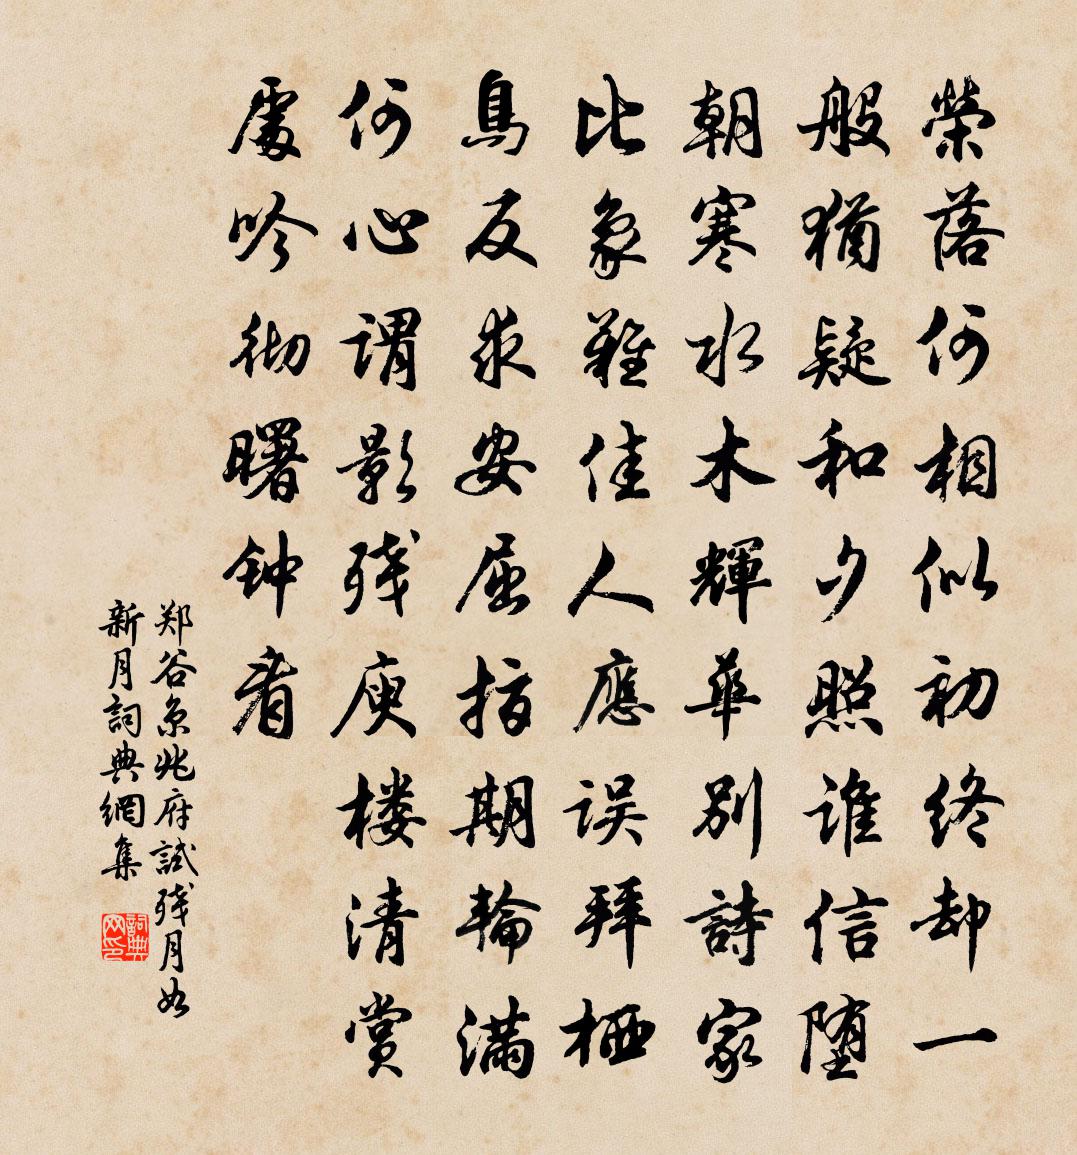 榮落何相似初終却一
般猶疑和夕照誰信堕
朝寒水木輝華别詩家
比象難佳人應误拜栖
鳥反求安屈指期輪滿
何心謂影残庾楼清賞
處吟彻曙钟看
郑谷京兆府試残月如
新月詞典網集
詞典网印